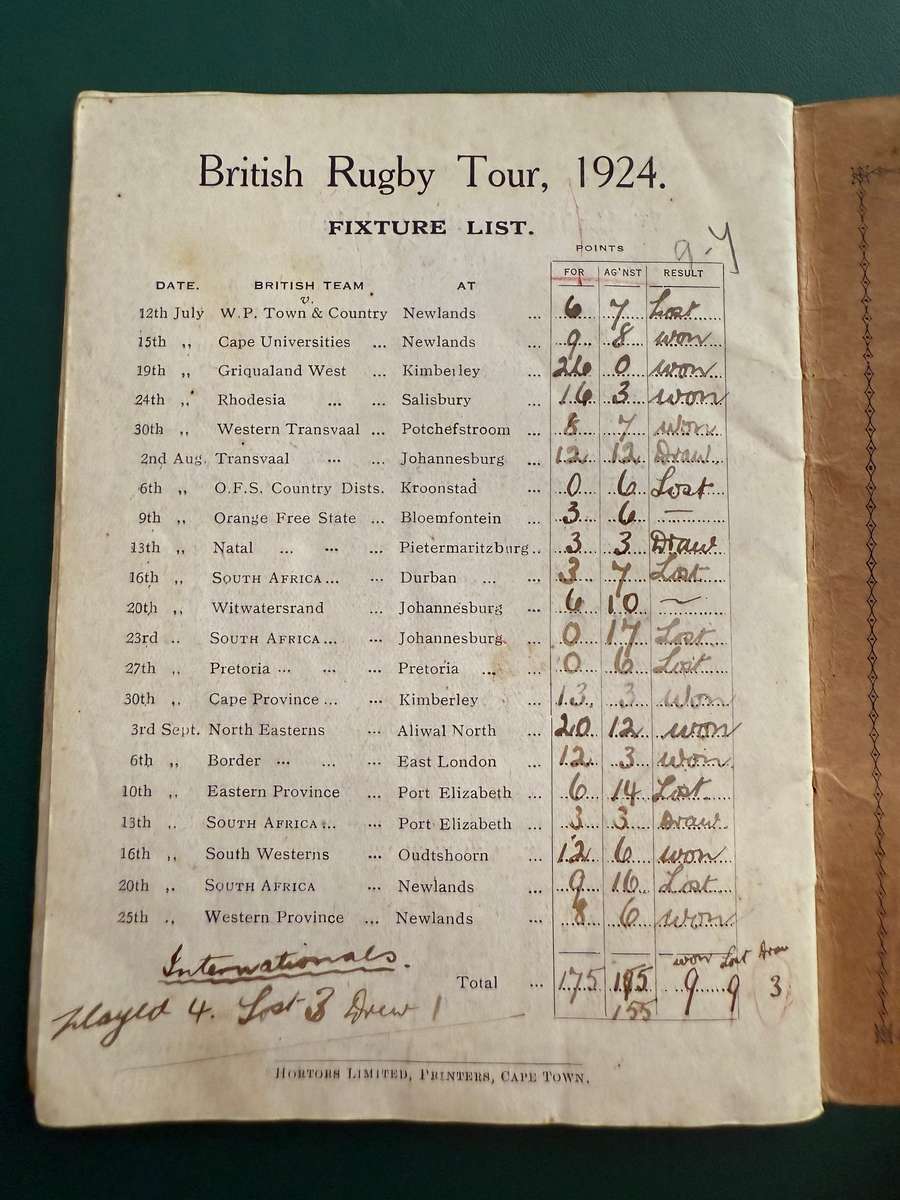 British Rugby Tour, 1924.
FIXTURE LIST.
9-7
POINTS
DATE. BRITISH TEAM AT FOR AG'NST RESULT
v.
12th July W.P. Town & Country Newlands ... 6 7 Lost
15th ,, Cape Universities ... Newlands ... 9 8 won
19th ,, Griqualand West ... Kimberley ... 26 0 won
24th ,, Rhodesia ... ... Salisbury ... 16 3 won
30th ,, Western Transvaal ... Potchefstroom ... 8 7 won
2nd Aug. Transvaal ... ... Johannesburg ... 12 12 Draw
6th ,, O.F.S. Country Dists. Kroonstad ... 0 6 Lost
9th ,, Orange Free State ... Bloemfontein ... 3 6 —
13th ,, Natal ... ... ... Pietermaritzburg .. 3 3 Draw
16th ,, SOUTH AFRICA ... ... Durban ... ... 3 7 Lost
20th ,, Witwatersrand ... Johannesburg ... 6 10 ~
23rd ,, SOUTH AFRICA ... ... Johannesburg. ... 0 17 Lost
27th ,, Pretoria ... ... ... Pretoria ... ... 0 6 Lost
30th ,, Cape Province ... ... Kimberley ... 13 3 Won
3rd Sept. North Easterns ... Aliwal North ... 20 12 won
6th ,, Border ... ... ... East London ... 12 3 won
10th ,, Eastern Province ... Port Elizabeth ... 6 14 Lost
13th ,, SOUTH AFRICA ... ... Port Elizabeth ... 3 3 Draw
16th ,, South Westerns ... Oudtshoorn ... 12 6 won
20th ,, SOUTH AFRICA ... Newlands ... 9 16 Lost
25th ,, Western Province ... Newlands ... 8 6 won
Internationals. won Lost Draw
Total ... 175 9 9 3
155
played 4. Lost 3 Drew 1
HORTORS LIMITED, PRINTERS, CAPE TOWN.